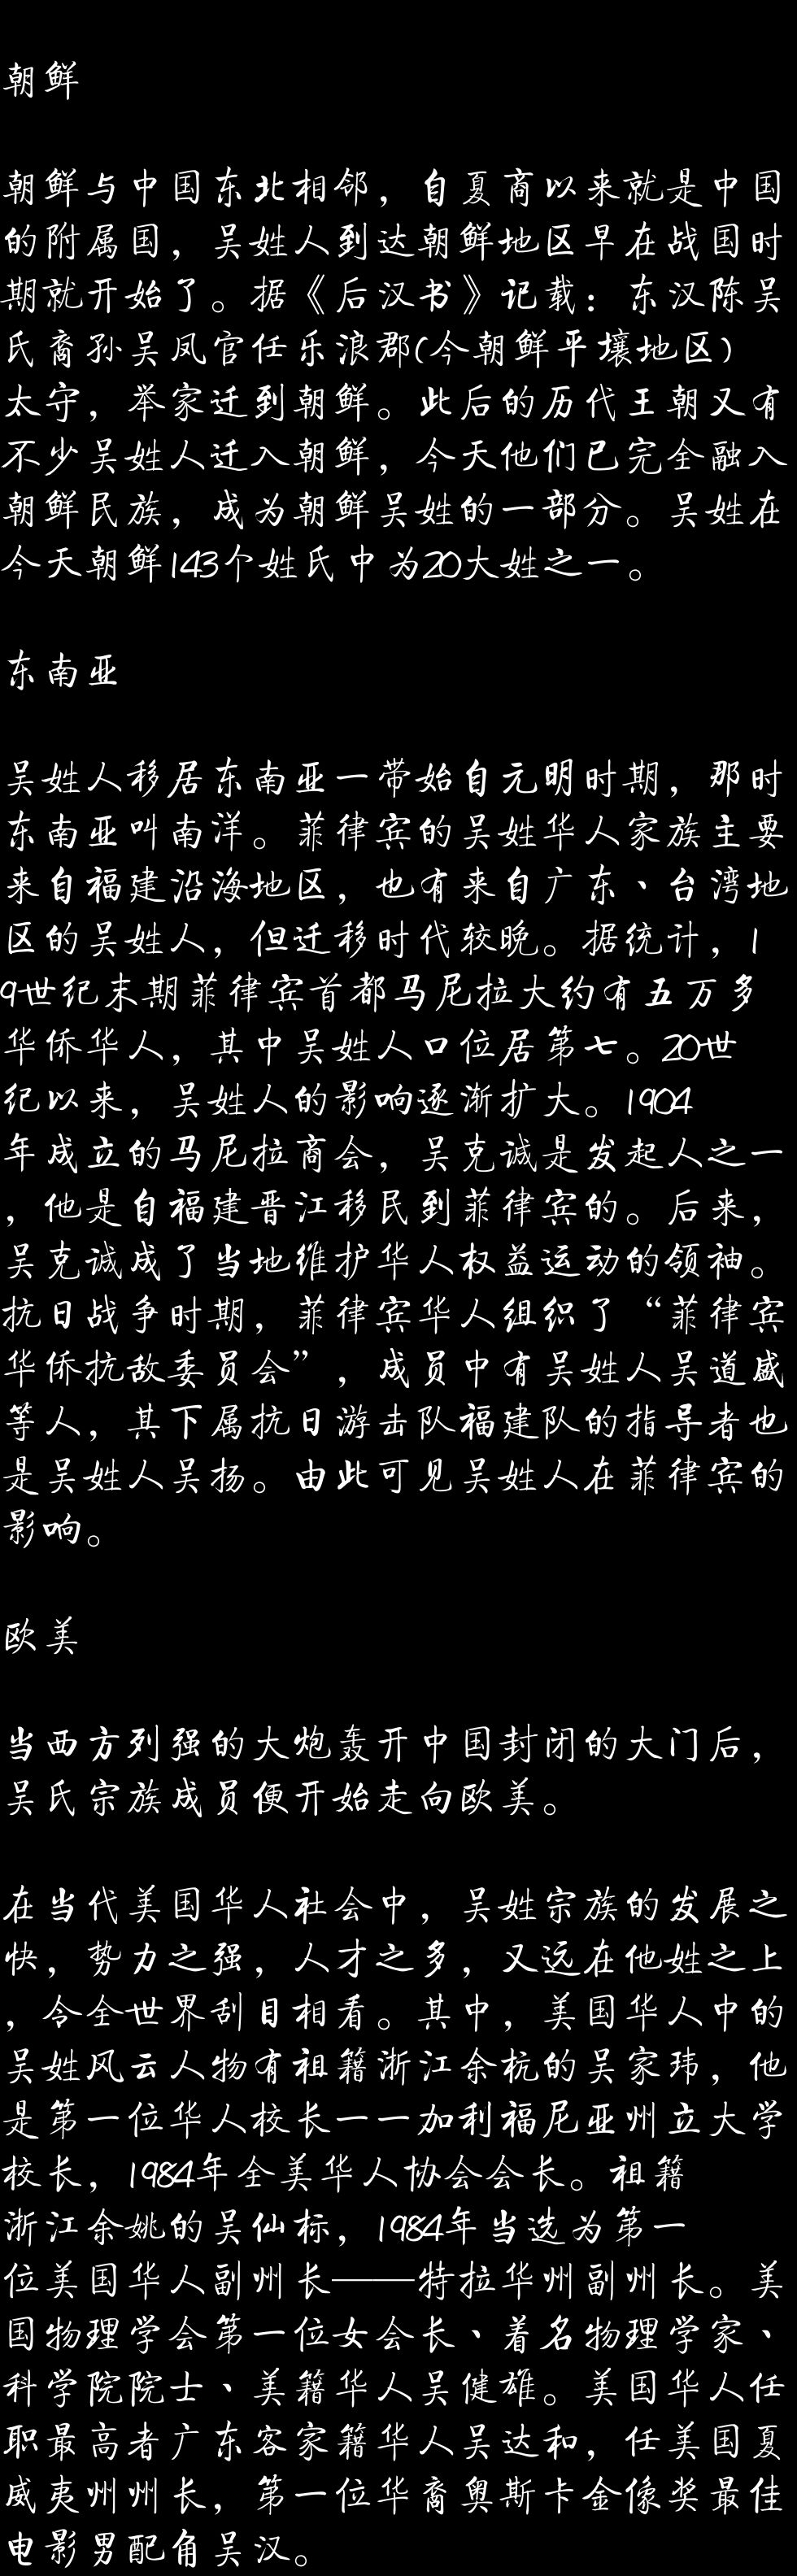 朝鲜
朝鲜与中国东北相邻，自夏商以来就是中国
的附属国，吴姓人到达朝鲜地区早在战国时
期就开始了。据《后汉书》记载：东汉陈吴
氏裔孙吴凤官任乐浪郡(今朝鲜平壤地区)
太守，举家迁到朝鲜。此后的历代王朝又有
不少吴姓人迁入朝鲜，今天他们已完全融入
朝鲜民族，成为朝鲜吴姓的一部分。吴姓在
今天朝鲜143个姓氏中为20大姓之一。
东南亚
吴姓人移居东南亚一带始自元明时期，那时
东南亚叫南洋。菲律宾的吴姓华人家族主要
来自福建沿海地区，也有来自广东、台湾地
区的吴姓人，但迁移时代较晚。据统计，1
9世纪末期菲律宾首都马尼拉大约有五万多
华侨华人，其中吴姓人口位居第七。20世
纪以来，吴姓人的影响逐渐扩大。1904
年成立的马尼拉商会，吴克诚是发起人之一
，他是自福建晋江移民到菲律宾的。后来，
吴克诚成了当地维护华人权益运动的领袖。
抗日战争时期，菲律宾华人组织了“菲律宾
华侨抗敌委员会”，成员中有吴姓人吴道盛
等人，其下属抗日游击队福建队的指导者也
是吴姓人吴扬。由此可见吴姓人在菲律宾的
影响。
欧美
当西方列强的大炮轰开中国封闭的大门后，
吴氏宗族成员便开始走向欧美。
在当代美国华人社会中，吴姓宗族的发展之
快，势力之强，人才之多，又远在他姓之上
，令全世界刮目相看。其中，美国华人中的
吴姓风云人物有祖籍浙江余杭的吴家玮，他
是第一位华人校长一一加利福尼亚州立大学
校长，1984年全美华人协会会长。祖籍
浙江余姚的吴仙标，1984年当选为第一
位美国华人副州长——特拉华州副州长。美
国物理学会第一位女会长、着名物理学家、
科学院院士、美籍华人吴健雄。美国华人任
职最高者广东客家籍华人吴达和，任美国夏
威夷州州长，第一位华裔奥斯卡金像奖最佳
电影男配角吴汉。